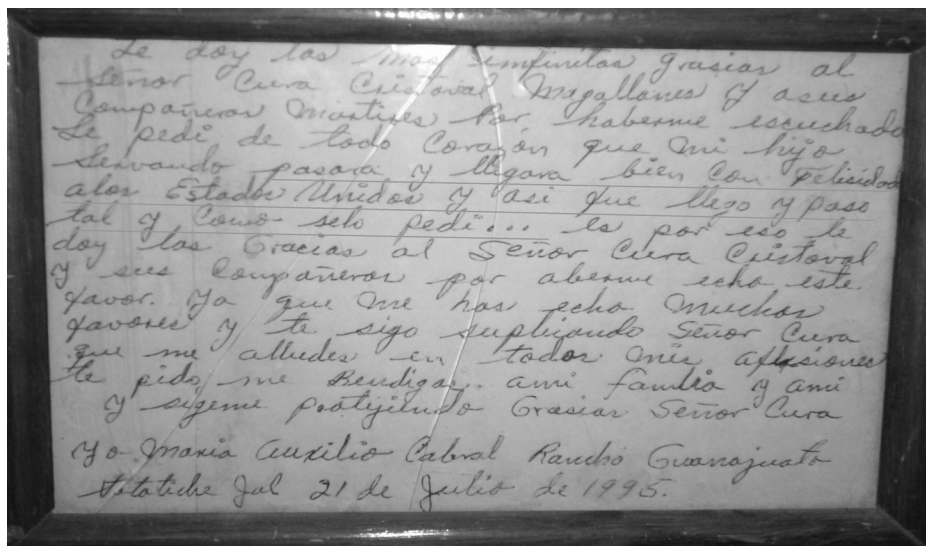 Le doy las mas infinitas grasias al
Señor Cura Cristoval Magallanes y asus
Compañeros Martires Por haberme escuchado
Le pedi de todo Corazón que mi hijo
Servando pasara y llegara bien con felicidad
alos Estados Unidos y asi fue llego y paso
tal y como selo pedi... es por eso le
doy las Gracias al Señor Cura Cristoval
y sus Compañeros por aberme echo este
favor. Ya que me has echo muchos
favores y te sigo suplicando Señor Cura
que me alludes en todas mis aflisiones
te pido me Bendigas.. ami familia y ami
y sigeme protijiendo Grasias Señor Cura
Yo Maria Auxilio Cabral Rancho Guanajuato
Totatiche Jal 21 de Julio de 1995.